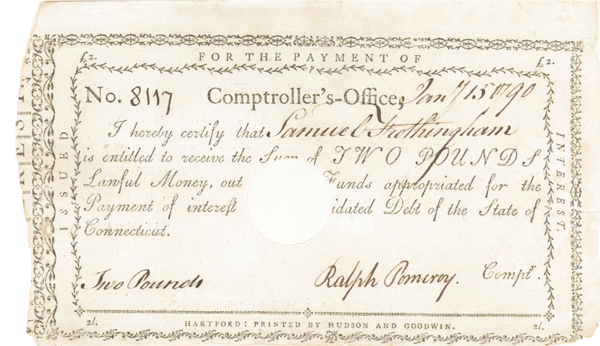 £2. FOR THE PAYMENT OF £2.
No. 8117 Comptroller's-Office, Jany 15 1790
I hereby certify that Samuel Frothingham
is entitled to receive the Sum of TWO POUNDS
Lawful Money, out Funds appropriated for the
Payment of interest idated Debt of the State of
Connecticut.
Two Pounds Ralph Pomeroy. Comptr.
2l. HARTFORD: PRINTED BY HUDSON AND GOODWIN. 2l.
ISSUED
INTEREST.